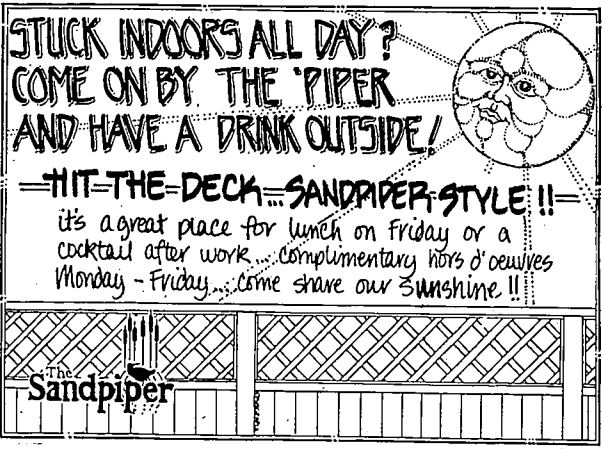 STUCK INDOORS ALL DAY?
COME ON BY THE 'PIPER
AND HAVE A DRINK OUTSIDE!
HIT THE DECK... SANDPIPER STYLE!!
it's a great place for lunch on Friday or a
cocktail after work... complimentary hors d'oeuvres
Monday - Friday... come share our sunshine!!
The
Sandpiper